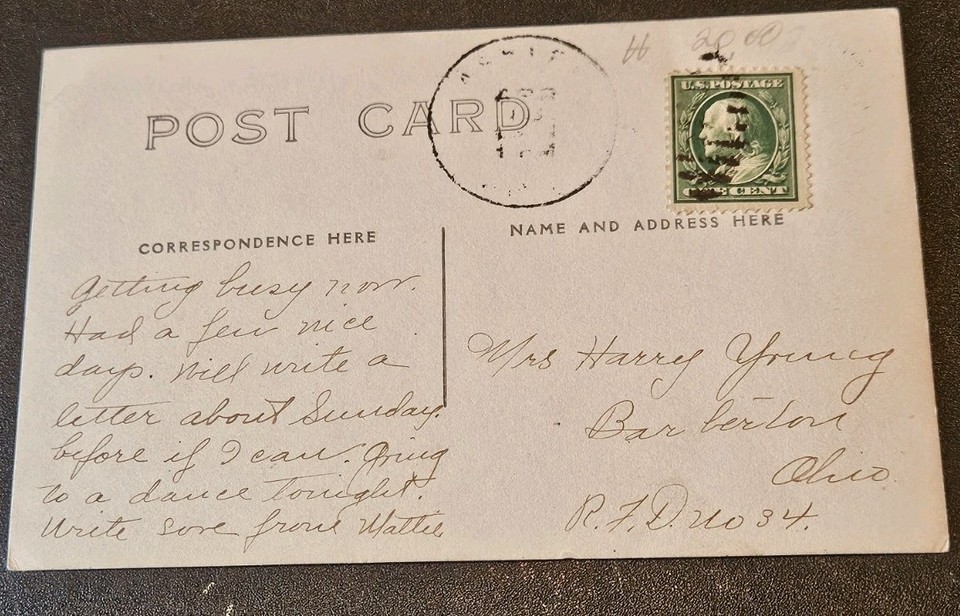 20 00
U.S. POSTAGE
ONE CENT
POST CARD
APR
CORRESPONDENCE HERE
NAME AND ADDRESS HERE
Getting busy now.
Had a few nice
days. Will write a
letter about Sunday.
before if I can. Going
to a dance tonight.
Write sore from Mattie
Mrs Harry Young
Barberton
Ohio
R.F.D. No 34.